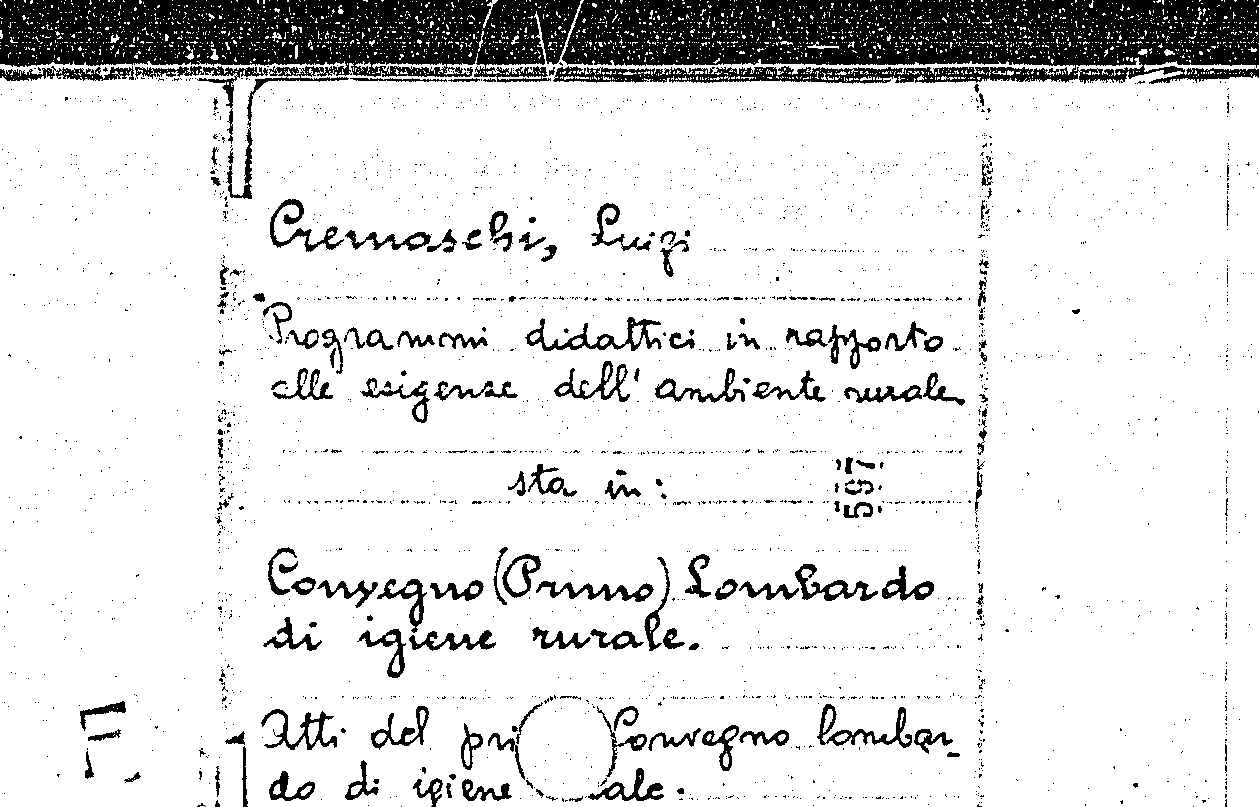 Cremaschi, Luigi
Programmi didattici in rapporto
alle esigenze dell'ambiente rurale.
sta in:
597
Convegno (Primo) Lombardo
di igiene rurale.
Atti del pri Convegno lombar-
do di igiene ale.